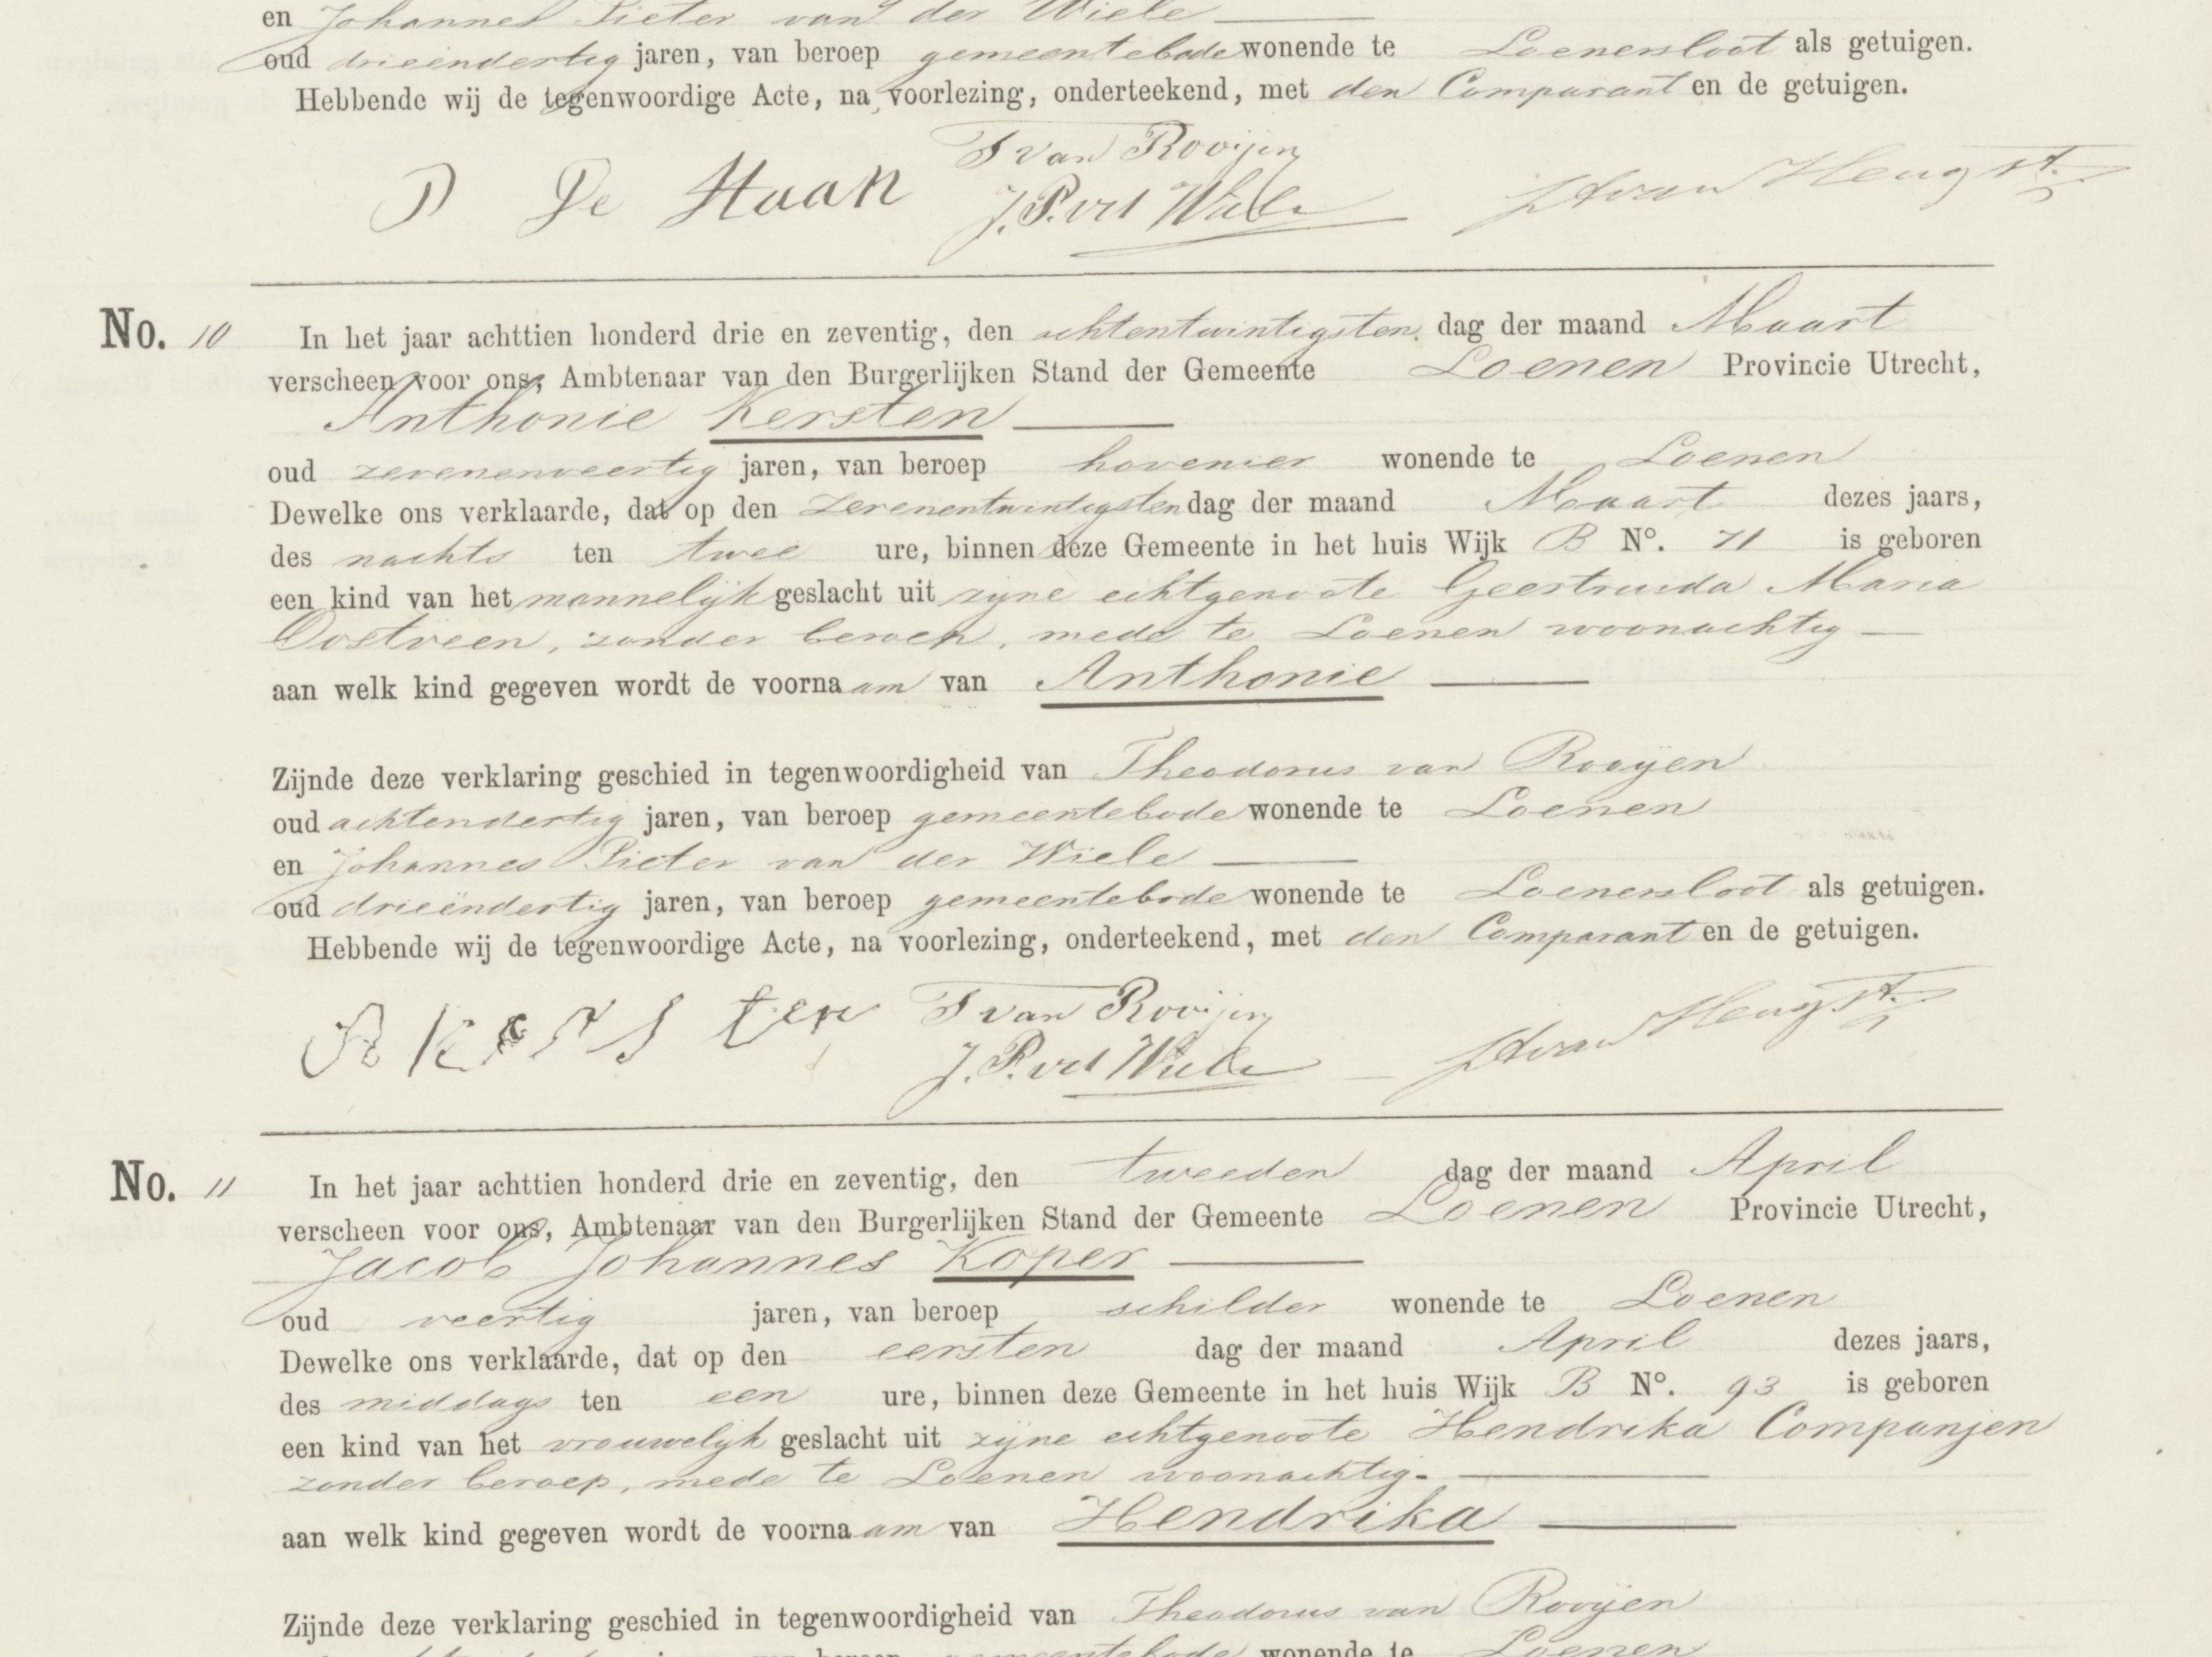 en Johannes Pieter van der Wiele
oud drieëndertig jaren, van beroep gemeentebode wonende te Loenersloot als getuigen.
Hebbende wij de tegenwoordige Acte, na voorlezing, onderteekend, met den Comparant en de getuigen.
P De Haan T van Rooijen
J.P. vd Wiele van Hengst
No. 10 In het jaar achttien honderd drie en zeventig, den achtentwintigsten dag der maand Maart
verscheen voor ons, Ambtenaar van den Burgerlijken Stand der Gemeente Loenen Provincie Utrecht,
Anthonie Kersten
oud zevenenveertig jaren, van beroep hovenier wonende te Loenen
Dewelke ons verklaarde, dat op den zevenentwintigsten dag der maand Maart dezes jaars,
des nachts ten twee ure, binnen deze Gemeente in het huis Wijk B No. 71 is geboren
een kind van het mannelijk geslacht uit zijne echtgenoote Geertruida Maria
Oostveen, zonder beroep, mede te Loenen woonachtig
aan welk kind gegeven wordt de voornaam van Anthonie
Zijnde deze verklaring geschied in tegenwoordigheid van Theodorus van Rooijen
oud achtendertig jaren, van beroep gemeentebode wonende te Loenen
en Johannes Pieter van der Wiele
oud drieëndertig jaren, van beroep gemeentebode wonende te Loenersloot als getuigen.
Hebbende wij de tegenwoordige Acte, na voorlezing, onderteekend, met den Comparant en de getuigen.
A Kersten T van Rooijen
J.P. vd Wiele van Hengst
No. 11 In het jaar achttien honderd drie en zeventig, den tweeden dag der maand April
verscheen voor ons, Ambtenaar van den Burgerlijken Stand der Gemeente Loenen Provincie Utrecht,
Jacob Johannes Koper
oud veertig jaren, van beroep schilder wonende te Loenen
Dewelke ons verklaarde, dat op den eersten dag der maand April dezes jaars,
des middags ten een ure, binnen deze Gemeente in het huis Wijk B No. 93 is geboren
een kind van het vrouwelijk geslacht uit zijne echtgenoote Hendrika Companjen
zonder beroep, mede te Loenen woonachtig.
aan welk kind gegeven wordt de voornaam van Hendrika
Zijnde deze verklaring geschied in tegenwoordigheid van Theodorus van Rooijen
gemeentebode wonende te Loenen